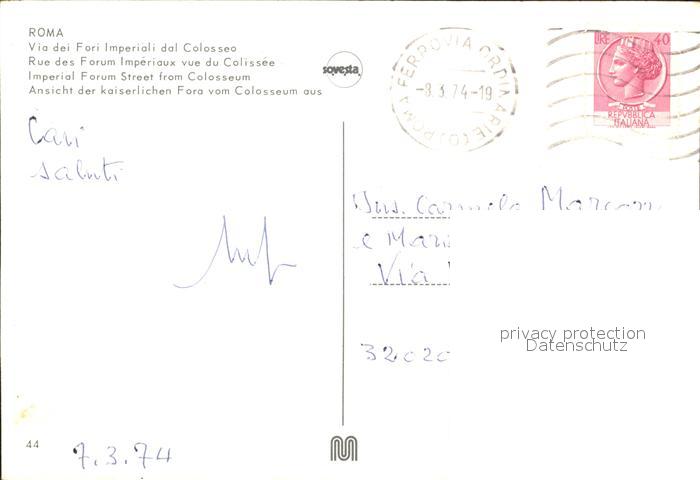 ROMA
Via dei Fori Imperiali dal Colosseo
Rue des Forum Impériaux vue du Colissée
Imperial Forum Street from Colosseum
Ansicht der kaiserlichen Fora vom Colosseum aus
sovesta
FERROVIA ORDINARIE
ROMA
-8.3.74-19
LIRE 40
POSTE
REPVBBLICA
ITALIANA
Cari
saluti
Carmelo
e
Via
32020
privacy protection
Datenschutz
44
7.3.74